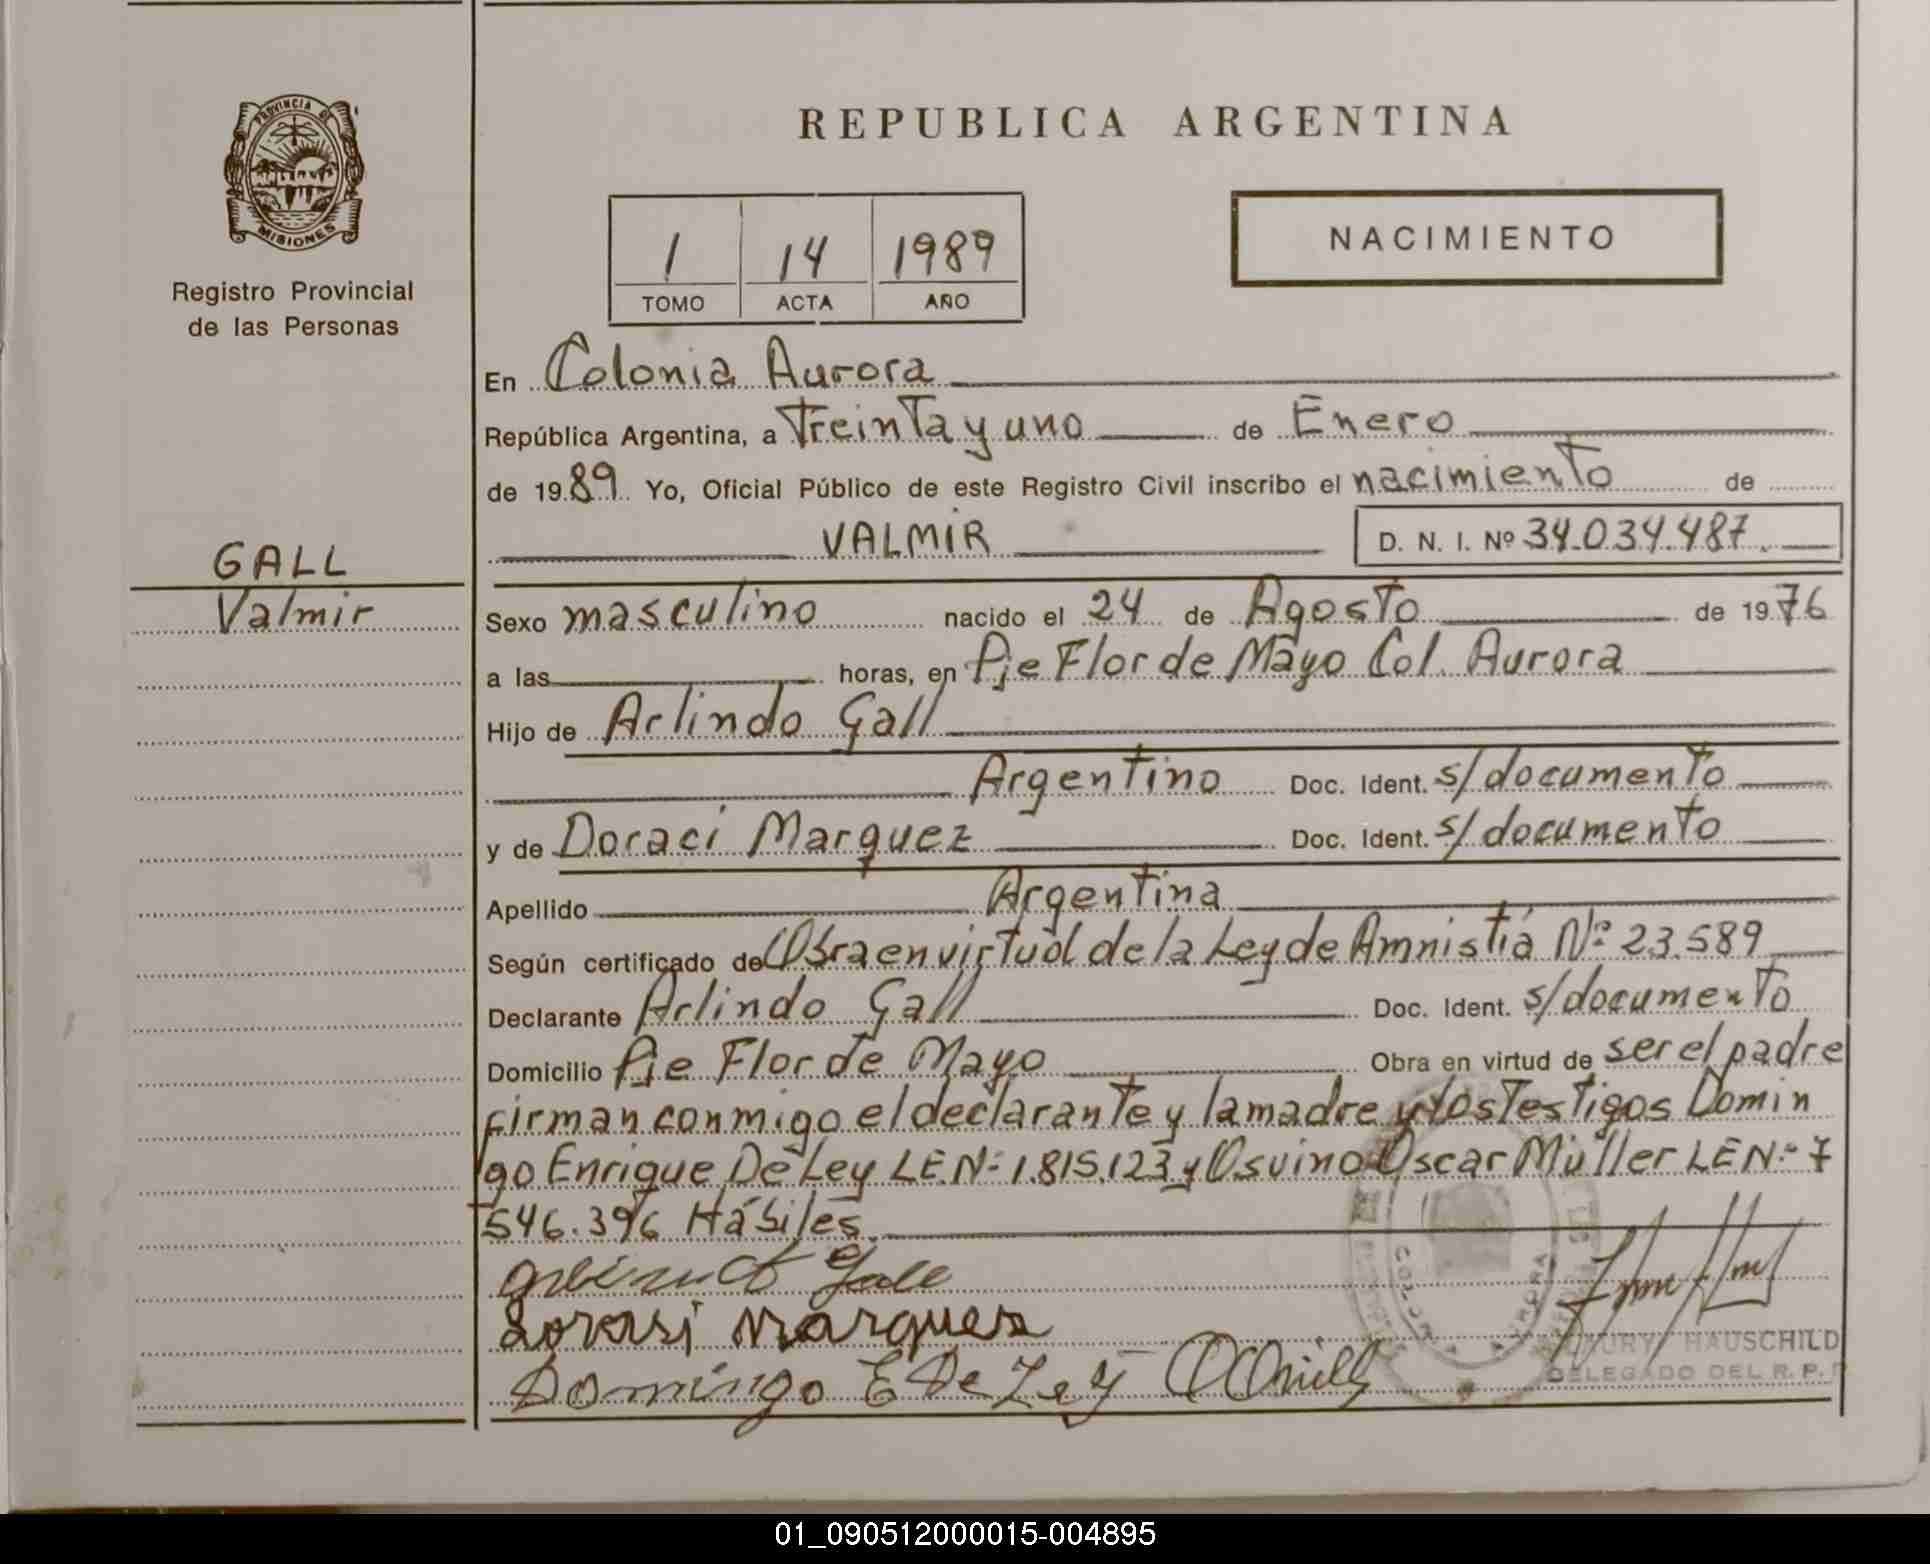 PROVINCIA DE
MISIONES
Registro Provincial
de las Personas
GALL
Valmir
REPUBLICA ARGENTINA
1 14 1989
TOMO ACTA AÑO
NACIMIENTO
En Colonia Aurora
República Argentina, a Treinta y uno de Enero
de 1989 Yo, Oficial Público de este Registro Civil inscribo el nacimiento de
VALMIR D. N. I. Nº 34.034.487.
Sexo masculino nacido el 24 de Agosto de 1976
a las horas, en Pje Flor de Mayo Col. Aurora
Hijo de Arlindo Gall
Argentino Doc. Ident. s/documento
y de Doraci Marquez Doc. Ident. s/documento
Apellido Argentina
Según certificado de Obra en virtud de la Ley de Amnistiá Nº 23.589
Declarante Arlindo Gall Doc. Ident. s/documento
Domicilio Pje Flor de Mayo Obra en virtud de ser el padre
firman conmigo el declarante y la madre y los Testigos Domin
go Enrique De Ley LE.Nº 1.815.123 y Osvino Oscar Müller LE Nº 7
546.396 Hábiles.
Gall
Dorasi Marques
Domingo E De Ley
COLONIA AURORA
HAUSCHILD
DELEGADO DEL R. P.
01_090512000015-004895